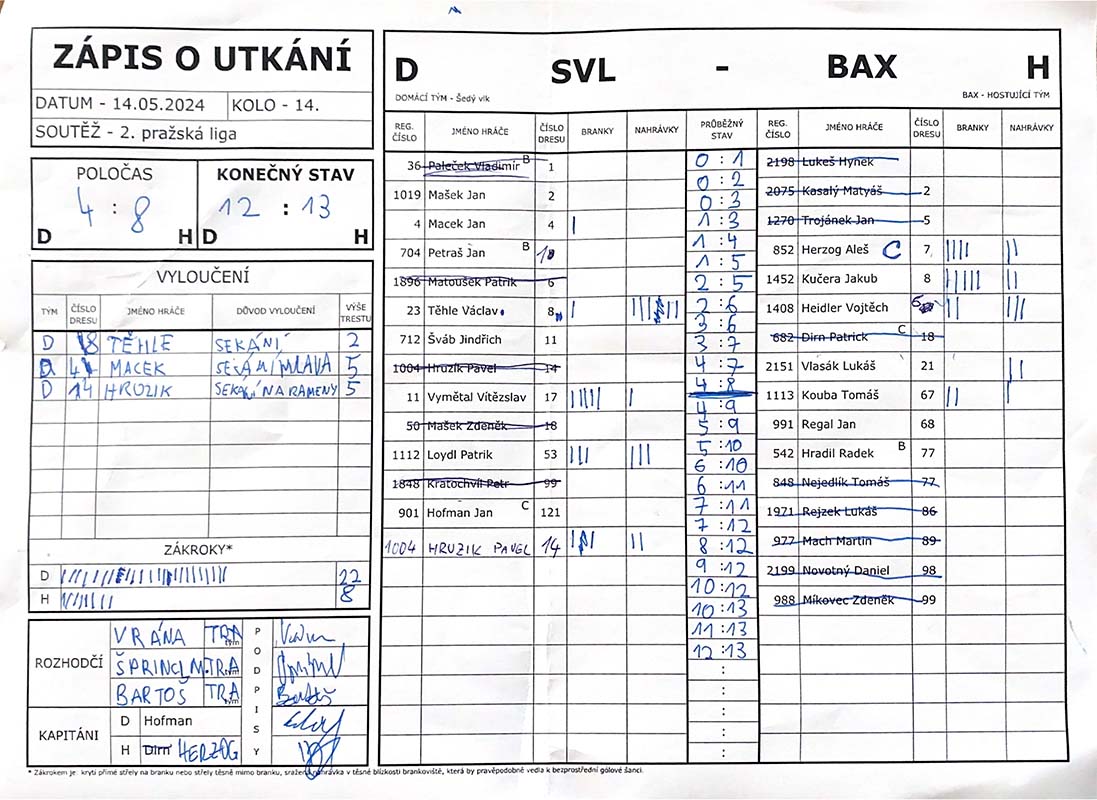 ZÁPIS O UTKÁNÍ
DATUM - 14.05.2024 KOLO - 14.
SOUTĚŽ - 2. pražská liga
POLOČAS KONEČNÝ STAV
4 : 8 12 : 13
D H D H
VYLOUČENÍ
TÝM ČÍSLO DRESU JMÉNO HRÁČE DŮVOD VYLOUČENÍ VÝŠE TRESTU
D 8 TĚHLE SEKÁNÍ 2
D 4 MACEK 5
D 14 HRUZIK SEKÁNÍ NA RAMENY 5
ZÁKROKY*
D 22
H 8
ROZHODČÍ
VRÁNA TRA tým
ŠPRINCL M. TRA tým
BARTOŠ TRA tým
PODPISY
Bartoš
KAPITÁNI
D Hofman
H Dirn HERZOG
D SVL - BAX H
DOMÁCÍ TÝM - Šedý vlk BAX - HOSTUJÍCÍ TÝM
REG. ČÍSLO JMÉNO HRÁČE ČÍSLO DRESU BRANKY NAHRÁVKY
36 Paleček Vladimír B 1
1019 Mašek Jan 2
4 Macek Jan 4
704 Petraš Jan B
1896 Matoušek Patrik 6
23 Těhle Václav 8
712 Šváb Jindřich 11
1004 Hruzík Pavel 14
11 Vymětal Vítězslav 17
50 Mašek Zdeněk 18
1112 Loydl Patrik 53
1848 Kratochvíl Petr 99
901 Hofman Jan C 121
1004 HRUZIK PAVEL 14
PRŮBĚŽNÝ STAV
0 : 1
0 : 2
0 : 3
1 : 3
1 : 4
1 : 5
2 : 5
2 : 6
3 : 6
3 : 7
4 : 7
4 : 8
4 : 9
5 : 9
5 : 10
6 : 10
6 : 11
7 : 11
7 : 12
8 : 12
9 : 12
10 : 12
10 : 13
11 : 13
12 : 13
:
:
:
:
:
REG. ČÍSLO JMÉNO HRÁČE ČÍSLO DRESU BRANKY NAHRÁVKY
2198 Lukeš Hynek
2075 Kasalý Matyáš 2
1270 Trojánek Jan 5
852 Herzog Aleš C 7
1452 Kučera Jakub 8
1408 Heidler Vojtěch
682 Dirn Patrick C 18
2151 Vlasák Lukáš 21
1113 Kouba Tomáš 67
991 Regal Jan 68
542 Hradil Radek B 77
848 Nejedlík Tomáš 77
1971 Rejzek Lukáš 86
977 Mach Martin 89
2199 Novotný Daniel 98
988 Míkovec Zdeněk 99
* Zákrokem je: krytí přímé střely na branku nebo střely těsně mimo branku, sražená nahrávka v těsné blízkosti brankoviště, která by pravěpodobně vedla k bezprostřední gólové šanci.